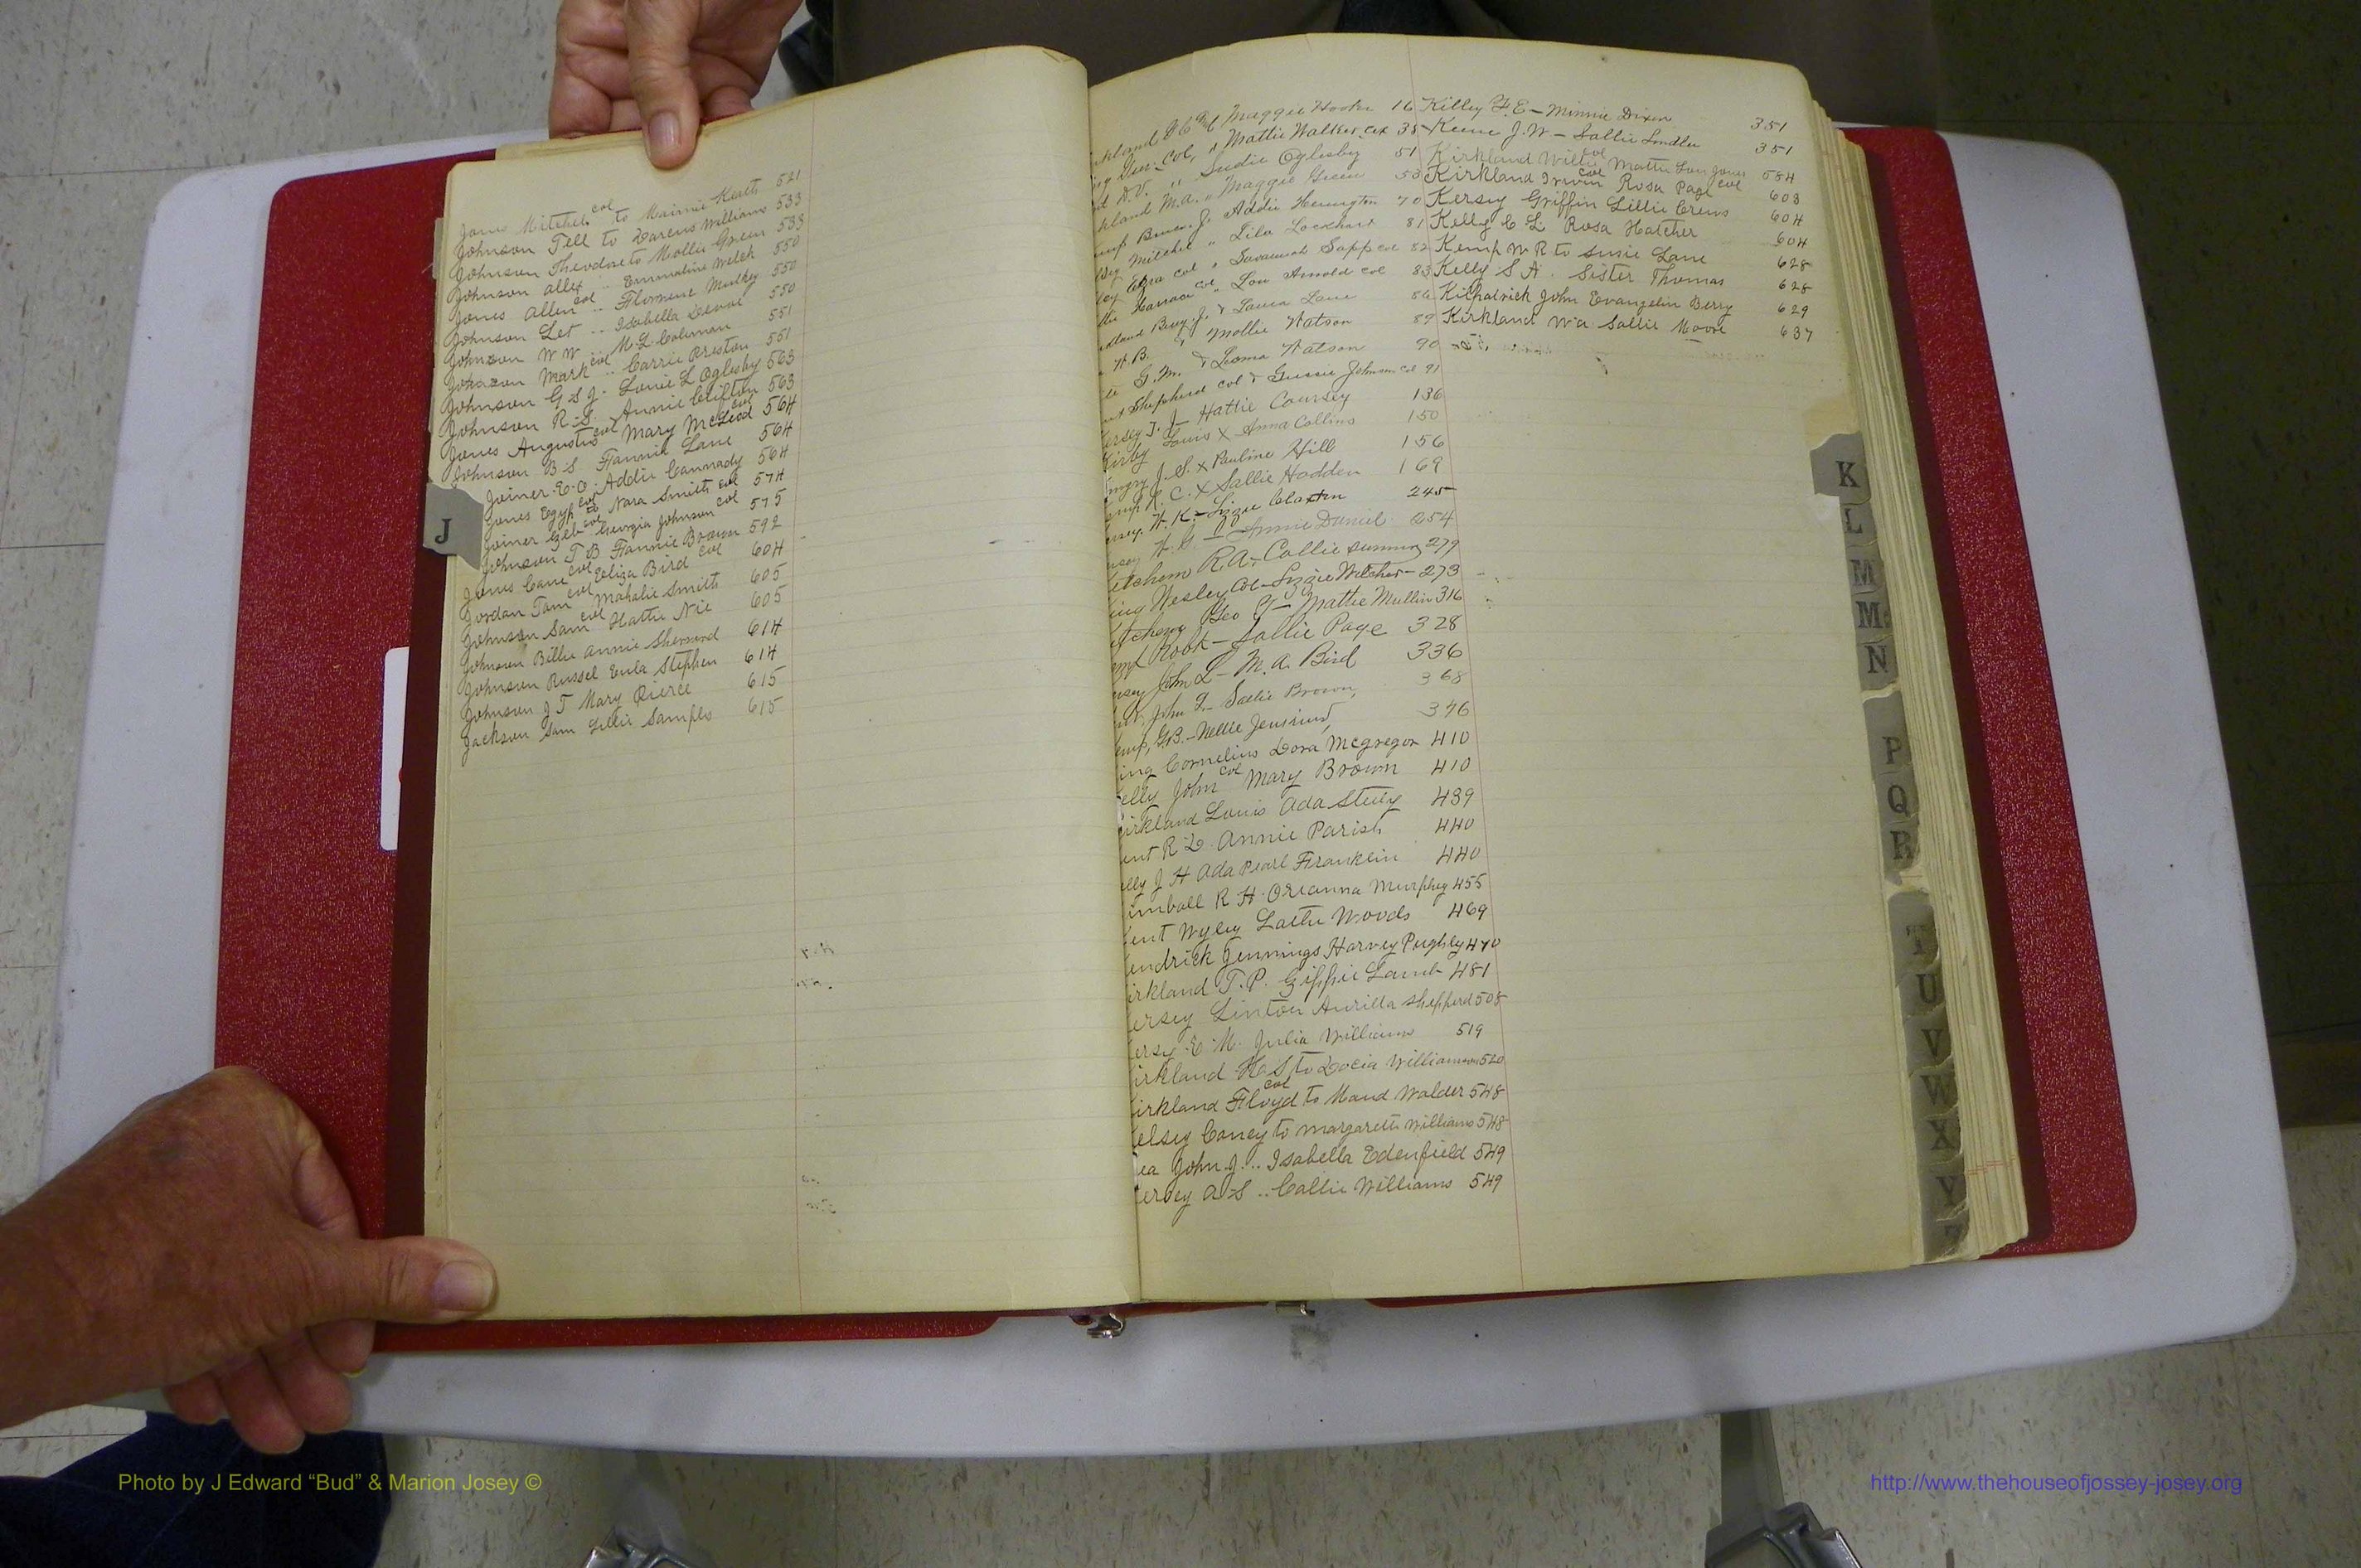 Jones Mitchel col to Mainnie Keath 521
Johnson Tell to Williams 533
Johnson Theodore to Mollie Green 533
Johnson Alley .. Emmaline Welch 550
Jones Allen col .. Florence Mulkey 550
Johnson Let .. Isabella 550
Johnson W W .. M. L. Coleman 551
Johnson Mark col .. Carrie Preston 551
Johnson G S J. Lonie L Oglesby 563
Johnson R. S. Annie Clifton 563
Jones Augustus col Mary McLeod col 564
Johnson B S. Fannie Lane 564
Joiner E. O. Addie Cannady 564
Jones Egyp col to Nora Smith col 574
Joiner Zeb col Georgia Johnson col 575
Johnson T B Fannie Brown 592
Jones Cane col Eliza Bird col 604
Jordan Tom col Mahalie Smith 605
Johnson Sam col Hattie Nie 605
Johnson Billie Annie Sherrord 614
Johnson Russel Eula Stephen 614
Johnson J T Mary Pierce 615
Jackson Sam Lillie Samples 615
J
rkland D C Maggie Hooks 16
Col, " Mattie Walker, col 35
D.V. " Sudie Oglesby 51
kland M.A. " Maggie Green 53
J. Addie Herrington 70
Mitchel " Lila Lockhart 81
Ezra col " Savannah Sapp col 82
col " Lou Arnold col 83
Berry J. & Laura Lane 86
H. B. & Mollie Watson 89
G. M. & Leoma Watson 90
Shepherd col & Gussie Johnson col 91
ersey J. J— Hattie Coursey 136
Kirby Louis X Anna Collins 150
ingry J. S. X Pauline Hill 156
emp R. C. X Sallie Hadden 169
ersey. H. K.—Lizzie Claxton 245
H. G. — Annie Daniel. 254
etchem R. A.— Callie 279
ing Wesley Col—Lizzie Witcher— 273
itchens Geo T— Mattie Mullin 316
emp Robt— Sallie Page 328
rsey John L— M. A. Bird 336
John L— Sallie Brown, 368
emp, G.B.—Nellie 376
ing Cornelius Dora Mcgregor 410
elly John col Mary Brown 410
irkland Louis Ada Stuby 439
ent R L. Annie Parish 440
elly J H Ada Pearl Franklin 440
imball R H. Orianna Murphey 455
ent Wyley Lattie Woods 469
endrick Jennings Harvey Pughsly 470
irkland T. P. Giffie Lamb 481
ersey Linton Aurilla Shepperd 508
ersey E. M. Julia Williams 519
irkland H. S. to Docia Williamson 520
irkland Floyd col to Maud Walder 548
elsey Coney to Margarett Williams 548
ea John J... Isabella Edenfield 549
ersey A S .. Callie Williams 549
Killey F. E— Minnie Dixon 351
Keene J. W — Sallie Lindler 351
Kirkland Willie col Mattie Lou Jones 584
Kirkland Irwin col Rosa Page col 603
Kersey Griffin Lillie Crews 604
Kelly C L Rosa Hatcher 604
Kemp W R to Susie Lane 628
Kelly S A. Sister Thomas 628
Kilpatrick John Evangelin Berry 629
Kirkland W A Sallie Moore 637
K
L
M
Mc
N
P
Q
R
T
U
V
W
X
Y
Photo by J Edward “Bud” & Marion Josey ©
http://www.thehouseofjossey-josey.org